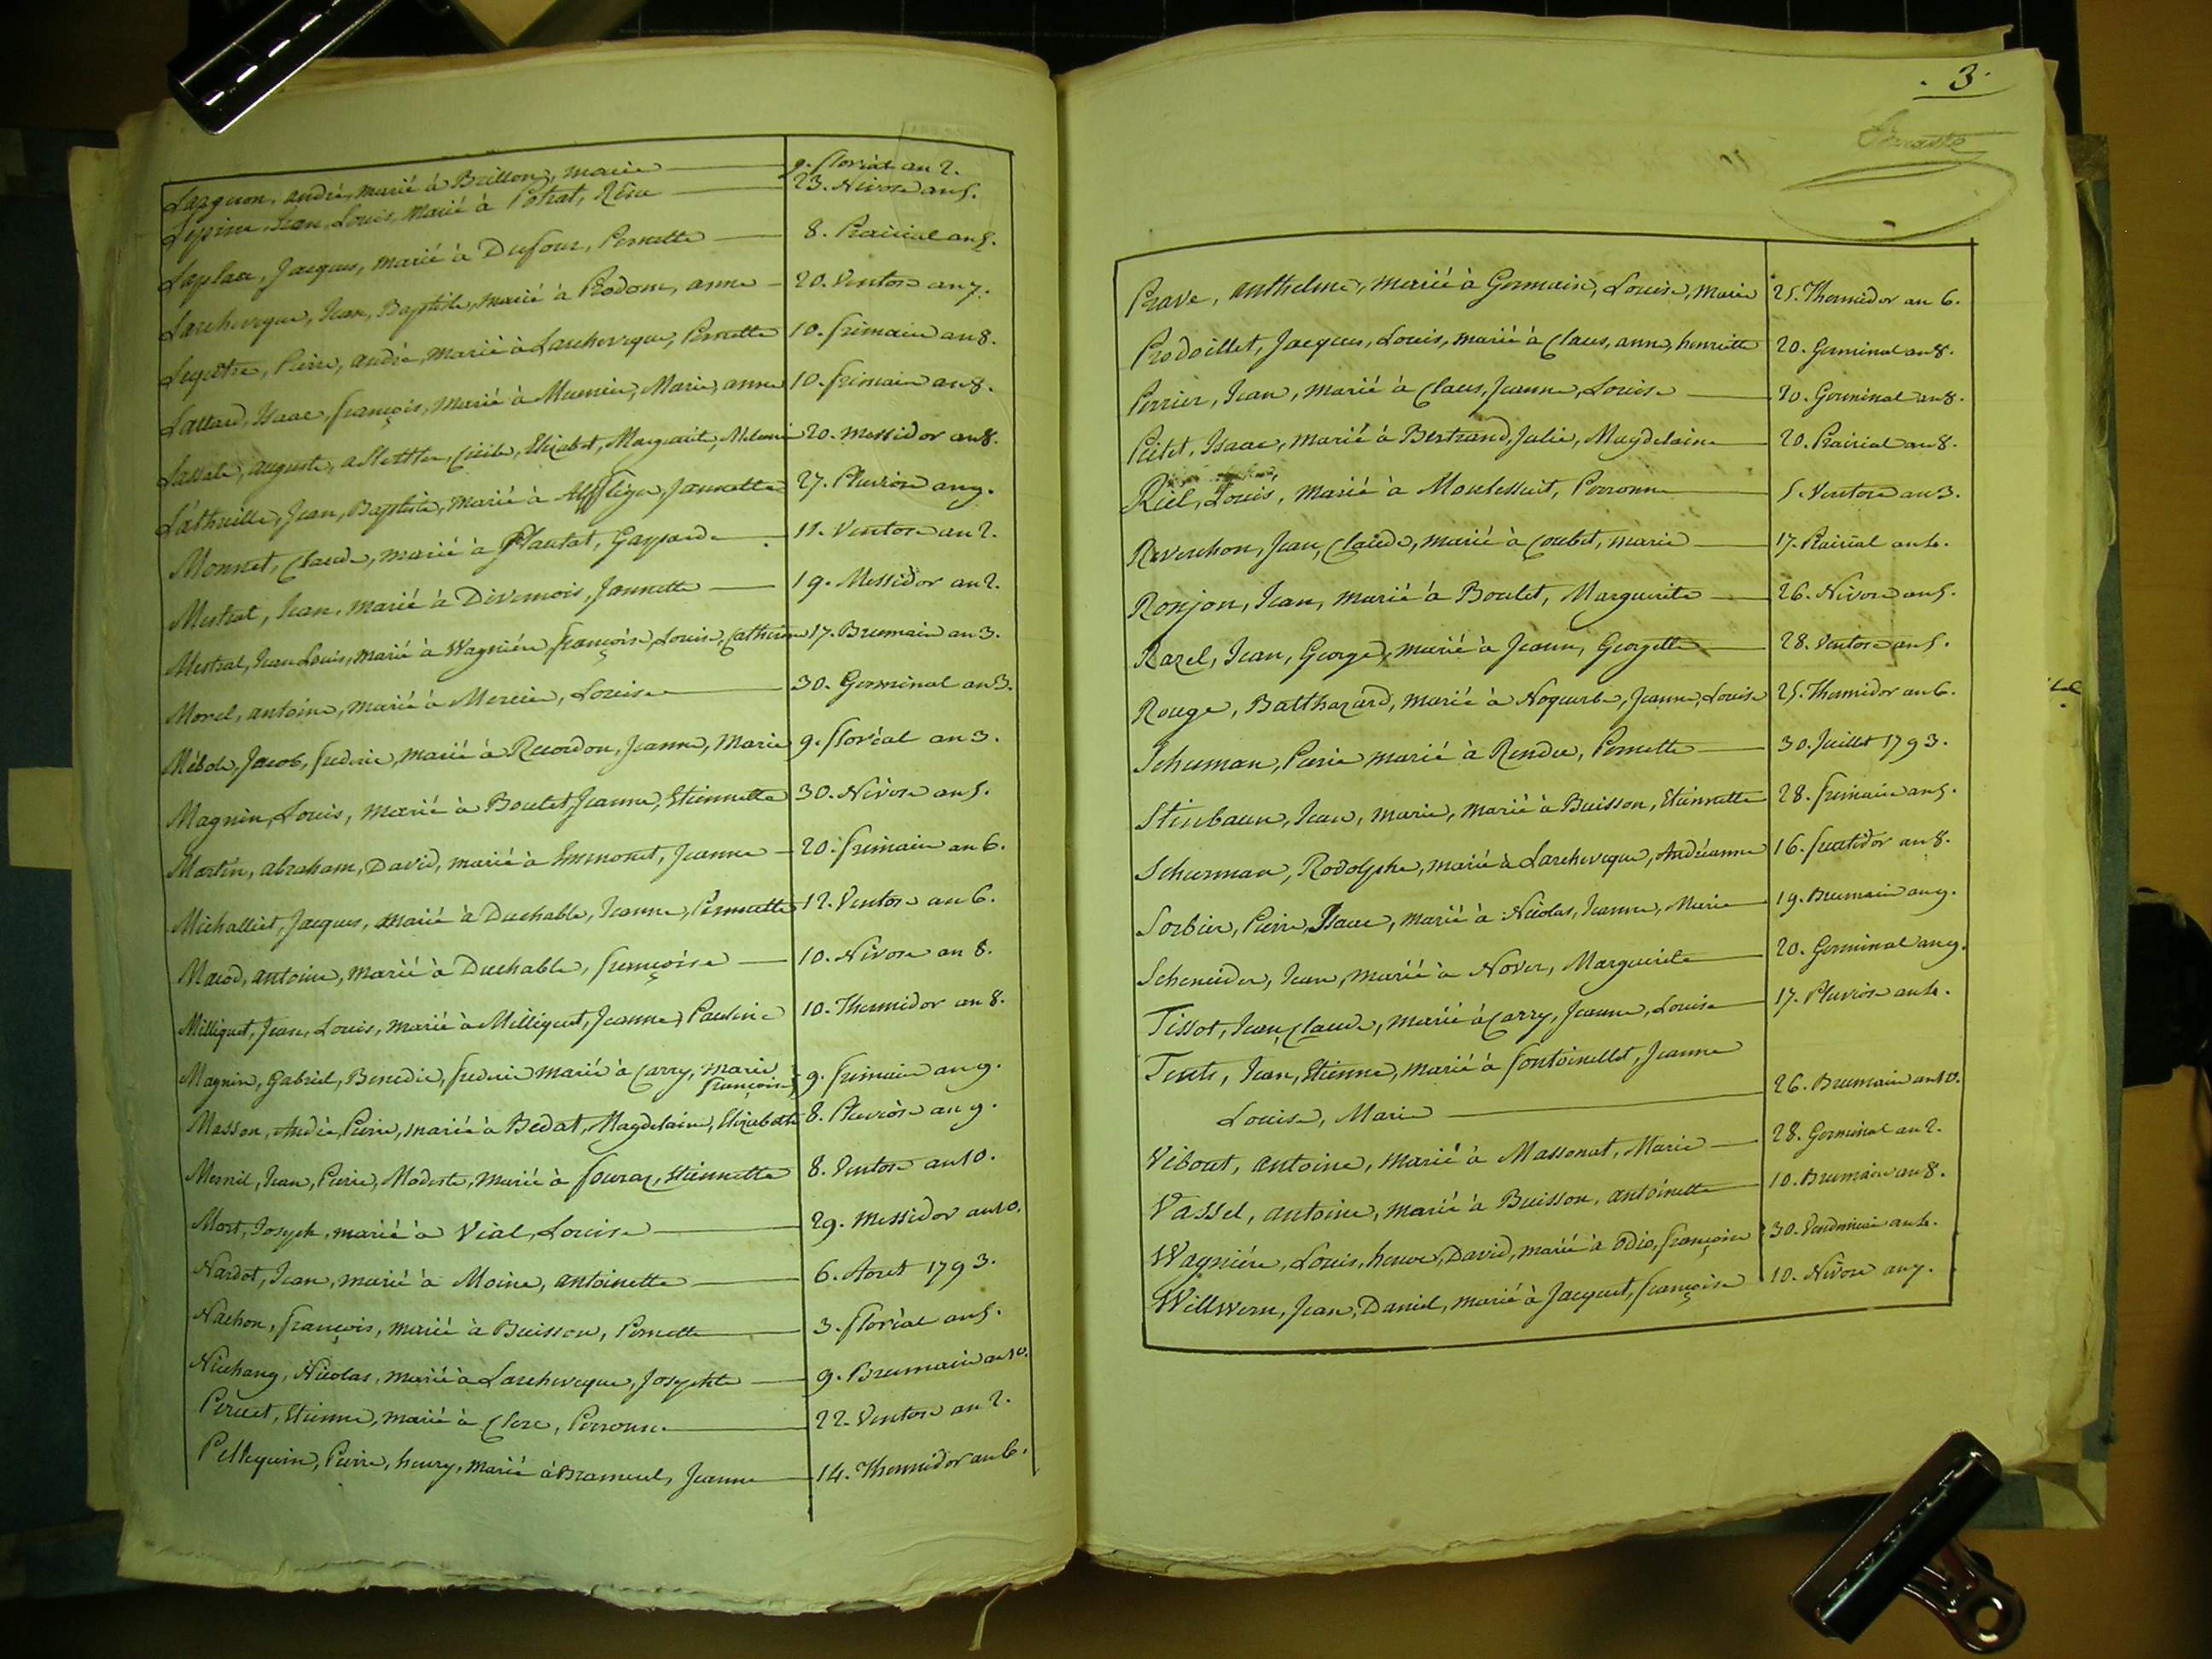 Larguon, andré, marié à Brillon, marie 9. floréal an 2.
Lépine, Jean, Louis, marié à Potrat, Réne 23. Nivose an 5.
Laplace, Jacques, marié à Dufour, Pernette 8. Prairial an 5.
Larcheveque, Jean, Baptiste, marié à Prodom, anne 20. Ventose an 7.
Pierre, andré, marié à Larcheveque, Pernette 10. frimaire an 8.
Lallard, Isaac, françois, marié à Meunier, Marie, anne 10. frimaire an 8.
Lassale, auguste, Cécile, Elizabet, Marguerite, Melanie 20. Messidor an 8.
Lathuille, Jean, Baptiste, marié à Jannette 27. Pluviose an 9.
Monnet, Claude, marié à Plantat, Gasparde 11. Ventose an 2.
Mestrat, Jean, marié à Divernois, Jannette 19. Messidor an 2.
Mestral, Jean Louis, marié à Wagnière, françoise, Louise, Catherine 17. Brumaire an 3.
Morel, antoine, marié à Mercier, Louise 30. Germinal an 3.
Mébold, Jacob, frederic, marié à Recordon, Jeanne, Marie 9. floréal an 3.
Magnin, Louis, marié à Boutet, Jeanne, Etiennette 30. Nivose an 5.
Martin, abraham, David, marié à Emmonet, Jeanne 20. frimaire an 6.
Michalliet, Jacques, marié à Duchable, Jeanne, Pernette 12. Ventose an 6.
Macod, antoine, marié à Duchable, françoise 10. Nivose an 8.
Milliquet, Jean, Louis, marié à Milliquet, Jeanne, Pauline 10. Thermidor an 8.
Magnin, Gabriel, Benedic, frederic marié à Carry, marie
françoise 9. frimaire an 9.
Masson, André, Pierre, marié à Bedat, Magdelaine, Elizabeth 8. Pluviose an 9.
Mesnil, Jean, Pierre, Modeste, marié à fouraz, Etiennette 8. Ventose an 10.
Mort, Joseph, marié à Vial, Louise 29. Messidor an 10.
Nardot, Jean, marié à Moine, antoinette 6. Aout 1793.
Nachon, françois, marié à Buisson, Pernette 3. floréal an 5.
Niehang, Nicolas, marié à Larcheveque, Josephte 9. Brumaire an 10.
Perret, Etienne, marié à Clerc, Perronne 22. Ventose an 2.
Pelleguin, Pierre, henry, marié à Brameul, Jeanne 14. Thermidor an 6.
. 3 .
Prave, anthelme, marié à Germain, Louise, Marie 25. Thermidor an 6.
Prodoillet, Jacques, Louis, marié à Claus, anne, henriette 20. Germinal an 8.
Perrier, Jean, marié à Claus, Jeanne, Louise 20. Germinal an 8.
Petet, Isaac, marié à Bertrand, Julie, Magdelaine 20. Prairial an 8.
Riel, Louis, marié à Perronne 5. Ventose an 3.
Reverchon, Jean, Claude, marié à Coubet, marie 17. Prairial an 4.
Ronjon, Jean, marié à Boulet, Marguerite 26. Nivose an 5.
Razel, Jean, George, marié à Jeann, Georgette 28. Ventose an 5.
Rouge, Balthazard, marié à Noguerbe, Jeanne, Louise 25. Thermidor an 6.
Schuman, Pierre marié à Rendu, Pernette 30. Juillet 1793.
Steinbaun, Jean, marie, marié à Buisson, Etiennette 28. frimaire an 5.
Schurman, Rodolphe, marié à Larcheveque, Andréanne 16. fructidor an 8.
Sorbier, Pierre, Isaac, marié à Nicolas, Jeanne, Marie 19. Brumaire an 9.
Scheneider, Jean, marié à Nover, Marguerite 20. Germinal an 9.
Tissot, Jean, Claude, marié à Carry, Jeanne, Louise 17. Pluviose an 4.
Jean, Etienne, marié à fontoinellet, Jeanne
Louise, Marie 26. Brumaire an 10.
Vibout, antoine, marié à Massonat, Marie 28. Germinal an 2.
Vassel, antoine, marié à Buisson, antoinette 10. Brumaire an 8.
Wagnière, Louis, David, marié à Odio, françoise 30. Vendemiaire an 4.
Willwern, Jean, Daniel, marié à Jacquet, françoise 10. Nivose an 7.